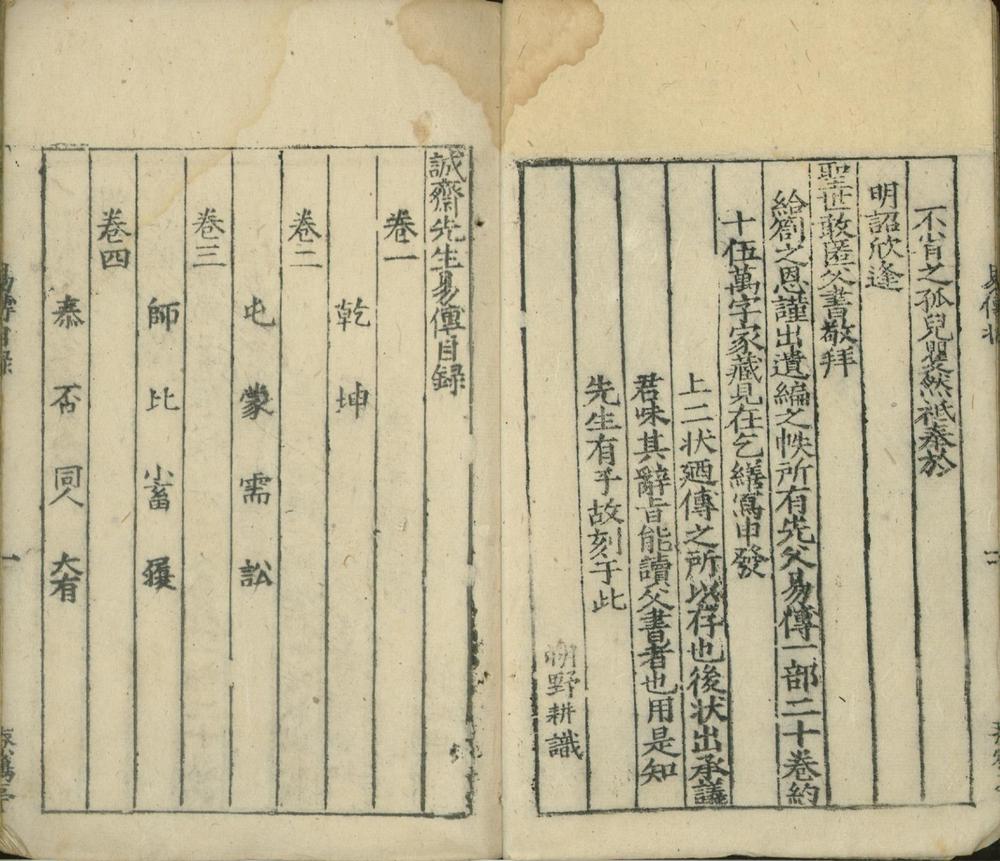 不肖之孤兒瞿然祗奉於
明詔欣逢
聖世敢匿父書敬拜
給劄之恩謹出遺編之帙所有先父易傳一部二十卷約
十伍萬字家藏見在乞繕寫申發
上二狀廼傳之所以存也後狀出承議
君味其辭旨能讀父書者也用是知
先生有子故刻于此
野耕識
誠齋先生易傳目録
卷一
乾 坤
卷二
屯 蒙 需 訟
卷三
師 比 小畜 履
卷四
泰 否 同人 大有
一